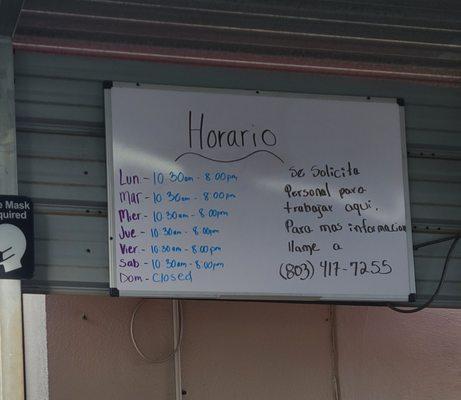 Horario
Lun.- 10:30am - 8:00pm
Mar - 10:30am - 8:00pm
Mier - 10:30am - 8:00pm
Jue - 10:30am - 8:00pm
Vier - 10:30am - 8:00pm
Sab - 10:30am - 8:00pm
Dom - Closed
Se Solicita
Personal para
trabajar aqui.
Para mas informacion
llame a
(803) 417-7255
Mask
quired